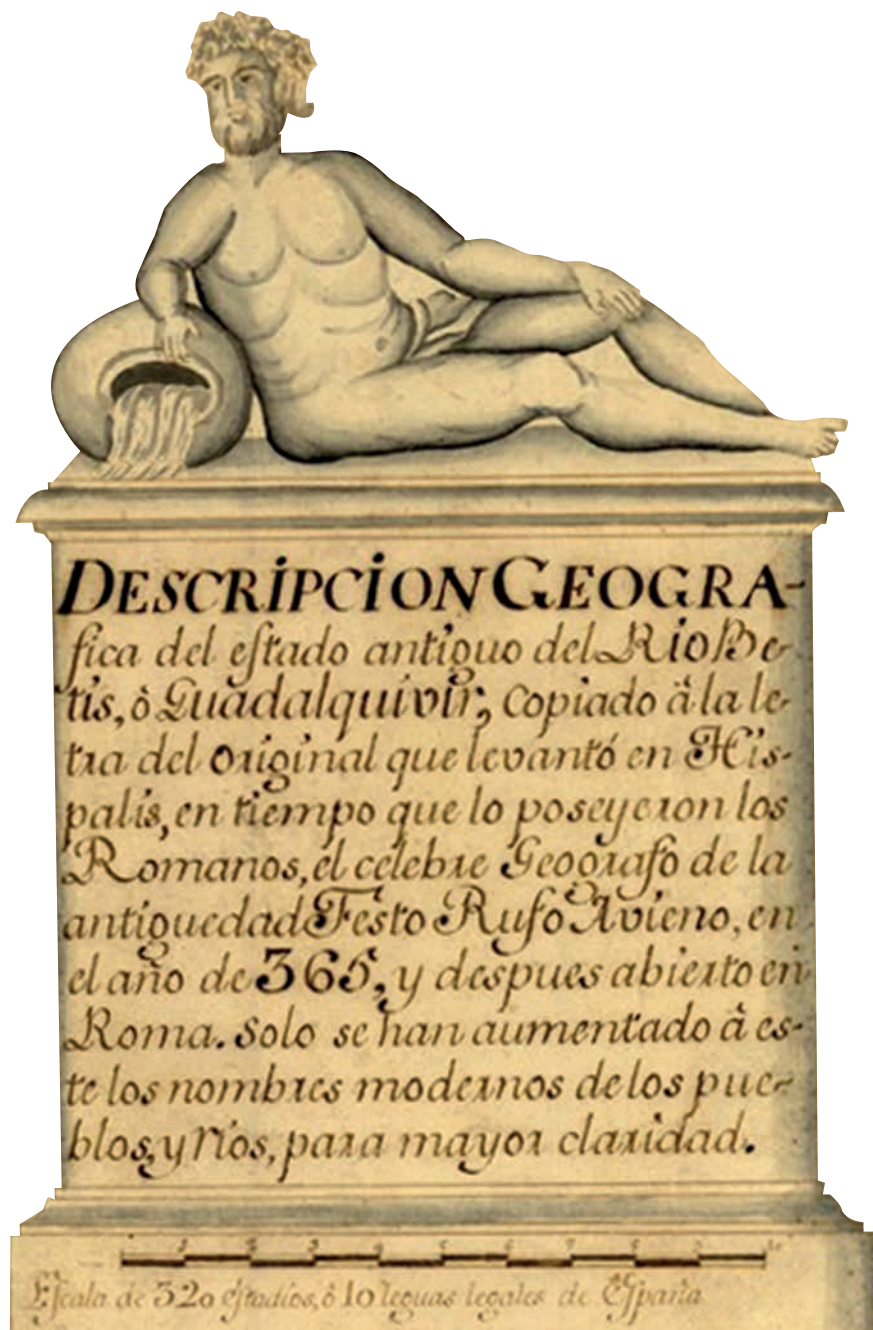 DESCRIPCION GEOGRA-
fica del estado antiguo del Rio Be-
tis, ò Guadalquivir, copiado à la le-
tra del original que levantó en His-
palis, en tiempo que lo poseyeron los
Romanos, el celebre Geografo de la
antiguedad Festo Rufo Avieno, en
el año de 365, y despues abierto en
Roma. Solo se han aumentado à es-
te los nombres modernos de los pue-
blos, y rios, para mayor claridad.
1 2 3 4 5 6 7 8 9 10
Escala de 320 estadios, ò 10 leguas legales de España